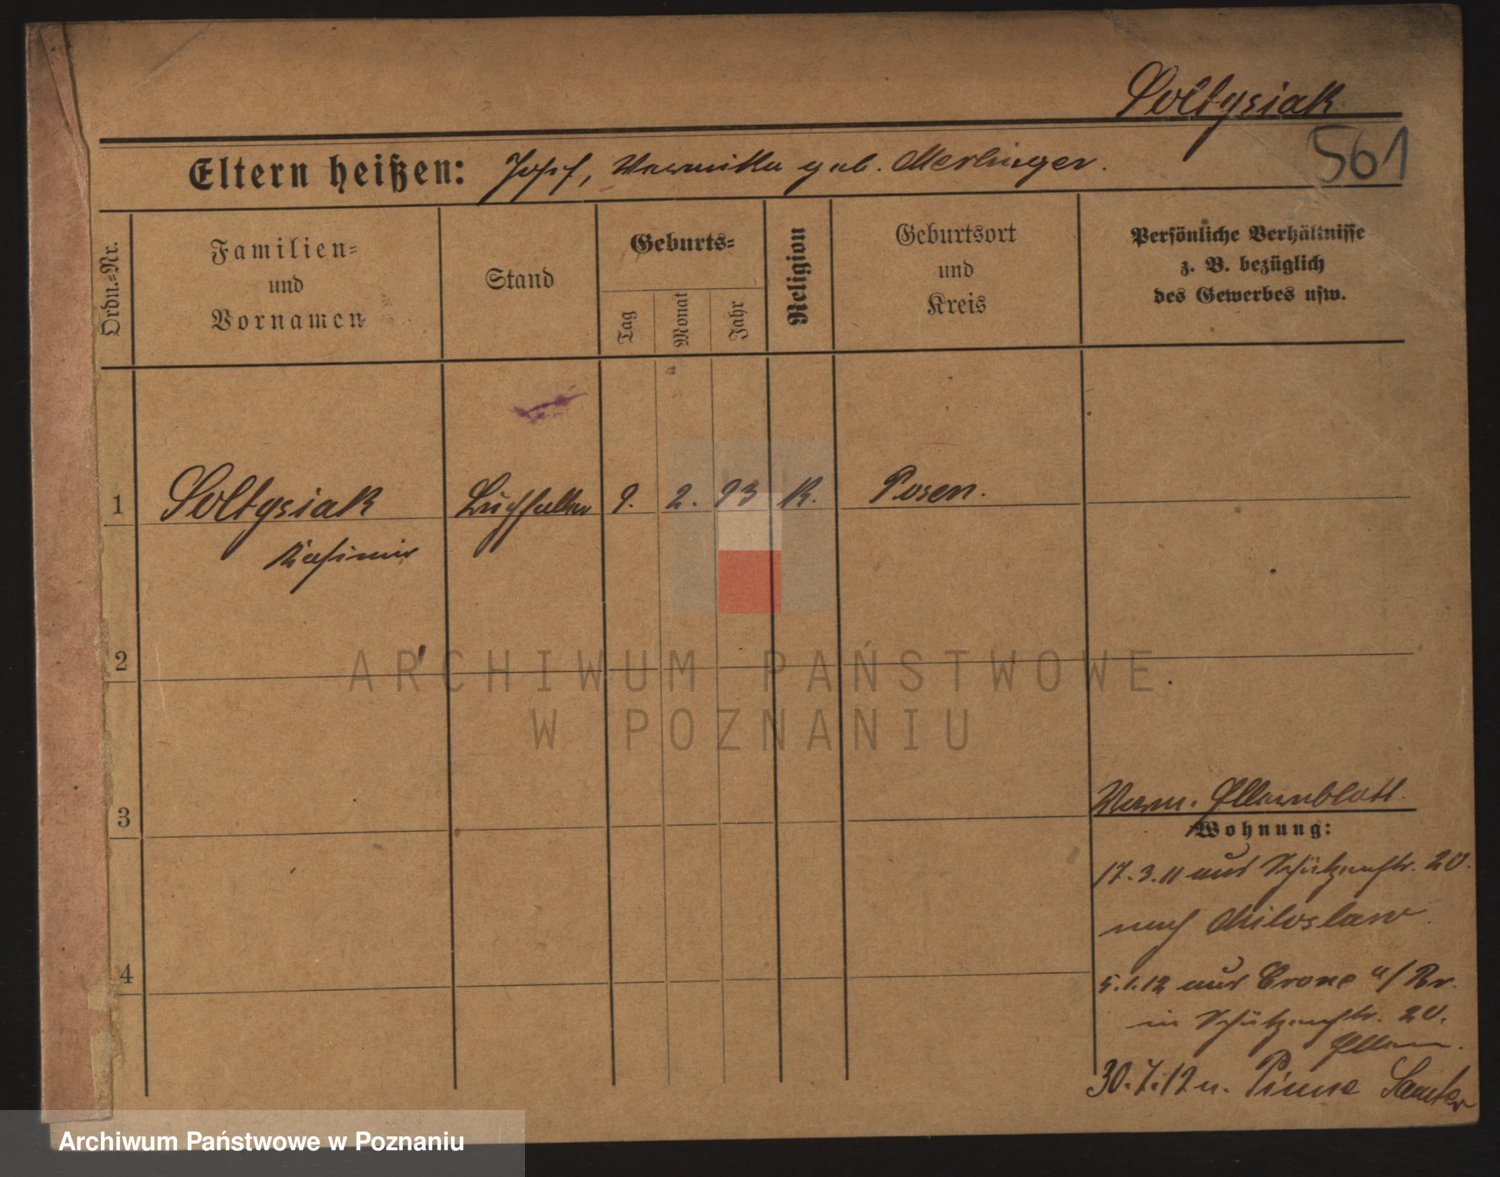 Soltysiak
561
Eltern heißen: Josef, Veronika geb. Merlinger.
Ordn.-Nr.
Familien-
und
Vornamen
Stand
Geburts-
Tag
Monat
Jahr
Religion
Geburtsort
und
Kreis
Persönliche Verhältnisse
z. B. bezüglich
des Gewerbes usw.
1
Soltysiak
Kasimir
9.
2.
93
K.
Posen.
2
3
4
Elternblatt
Wohnung:
17.3.11 aus Schützenstr. 20.
nach Miloslaw.
5.1.12 aus Crone a/Br.
in Schützenstr. 20.
Eltern.
30.7.12 n. Pinne Samter
ARCHIWUM PAŃSTWOWE
W POZNANIU
Archiwum Państwowe w Poznaniu